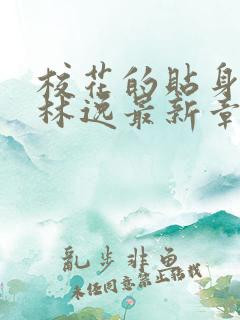 校花的贴身
林逸最新章
亂步非鱼
未经同意禁止转载